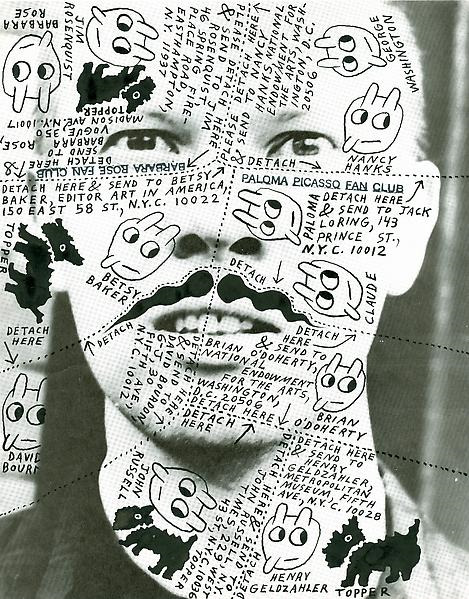 BARBARA
ROSE
JIM
ROSENQUIST
TOPPER
DETACH HERE &
SEND TO
BARBARA ROSE,
VOGUE, 350
MADISON AVE, N.Y.C. 10017
PLEASE DETACH HERE
& SEND TO JIM
ROSENQUIST,
46 SPRING FIRE-
PLACE ROAD,
EASTHAMPTON,
N.Y.
PLEASE DETACH HERE
& SEND TO NANCY
HANKS, NATIONAL
ENDOWMENT FOR
THE ARTS, WASH-
INGTON, D.C.
20506
GEORGE
WASHINGTON
NANCY
HANKS
DETACH
BARBARA ROSE FAN CLUB
PALOMA PICASSO FAN CLUB
DETACH HERE & SEND TO BETSY
BAKER, EDITOR ART IN AMERICA,
150 EAST 58 ST., N.Y.C. 10022
DETACH HERE
& SEND TO JACK
LORING, 143
PRINCE ST.,
N.Y.C. 10012
PALOMA
CLAUDE
TOPPER
BETSY
BAKER
DETACH
DETACH
DETACH
HERE
DETACH
HERE
& SEND TO
BRIAN O'DOHERTY,
NATIONAL
ENDOWMENT
FOR THE ARTS,
WASHINGTON,
D.C. 20506
BRIAN
O'DOHERTY
DETACH HERE
& SEND TO
DAVID BOURDON,
FIFTH AVE,
N.Y.C. 10012
DETACH HERE
DETACH
HERE
DAVID
BOURN
DETACH HERE
& SEND TO
HENRY
GELDZAHLER,
METROPOLITAN
MUSEUM, FIFTH
AVE, N.Y.C. 10028
JOHN
RUSSELL
TOPPER
DETACH HERE
& SEND TO
JOHN RUSSELL,
N.Y. TIMES,
229 WEST
43 ST, N.Y.C. 10036
HENRY
GELDZAHLER
TOPPER